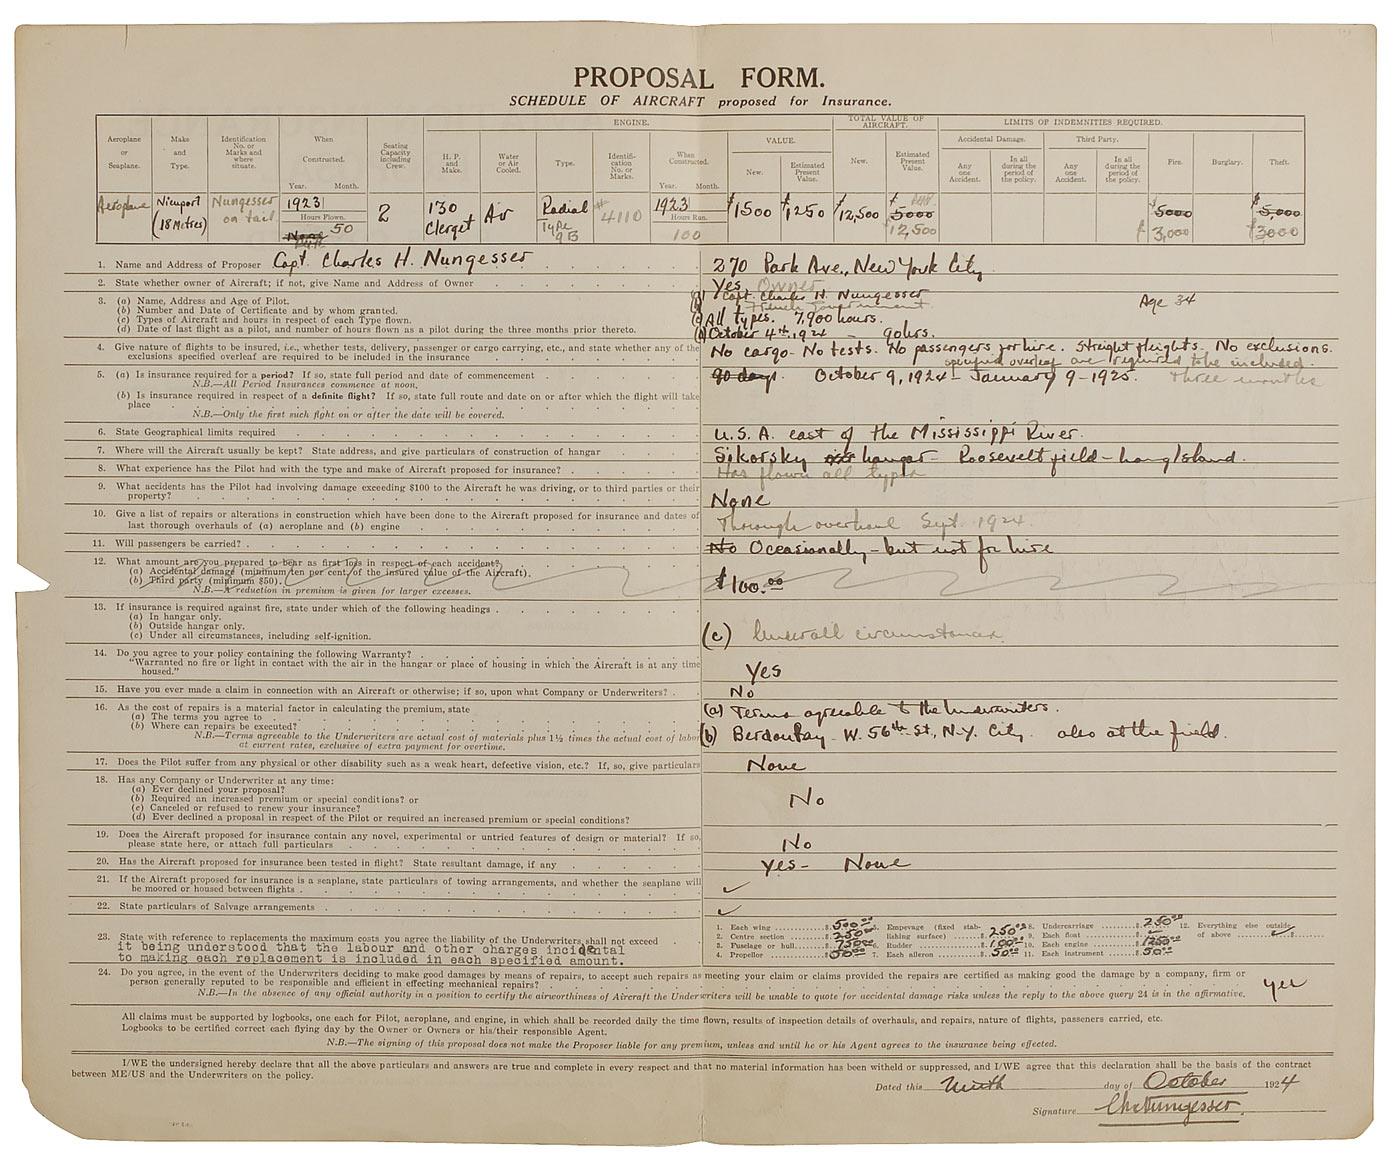 PROPOSAL FORM.
SCHEDULE OF AIRCRAFT proposed for Insurance.
Aeroplane or Seaplane.
Make and Type.
Identification No. or Marks and where situate.
When Constructed.
Year. Month.
Seating Capacity including Crew.
ENGINE.
H. P. and Make.
Water or Air Cooled.
Type.
Identification No. or Marks.
When Constructed.
Year. Month.
VALUE.
New.
Estimated Present Value.
TOTAL VALUE OF AIRCRAFT.
New.
Estimated Present Value.
LIMITS OF INDEMNITIES REQUIRED.
Accidental Damage.
Any one Accident.
In all during the period of the policy.
Third Party.
Any one Accident.
In all during the period of the policy.
Fire.
Burglary.
Theft.
Aeroplane
Nieuport (18 Metres)
Nungesser on tail
1923
Hours Flown.
None 50
2
130 Clerget
Air
Radial Type 9B
# 4110
1923
Hours Run.
100
$1500
$1250
$12,500
$5000 12,500
$5000 $3,000
$5,000 $3000
1. Name and Address of Proposer Capt. Charles H. Nungesser
270 Park Ave., New York City
2. State whether owner of Aircraft; if not, give Name and Address of Owner
Yes, Owner
3. (a) Name, Address and Age of Pilot.
(b) Number and Date of Certificate and by whom granted.
(c) Types of Aircraft and hours in respect of each Type flown.
(d) Date of last flight as a pilot, and number of hours flown as a pilot during the three months prior thereto.
(a) Capt. Charles H. Nungesser Age 34
(b) French Government
(c) All types. 7,900 hours.
(d) October 4th, 1924 90 hrs.
4. Give nature of flights to be insured, i.e., whether tests, delivery, passenger or cargo carrying, etc., and state whether any of the
exclusions specified overleaf are required to be included in the insurance
No cargo - No tests. No passengers for hire. Straight flights. No exclusions.
specified overleaf are required to be included.
5. (a) Is insurance required for a period? If so, state full period and date of commencement
N.B.—All Period Insurances commence at noon.
90 days. October 9, 1924 - January 9 - 1925. Three months
(b) Is insurance required in respect of a definite flight? If so, state full route and date on or after which the flight will take
place
N.B.—Only the first such flight on or after the date will be covered.
6. State Geographical limits required
U.S.A. east of the Mississippi River.
7. Where will the Aircraft usually be kept? State address, and give particulars of construction of hangar
Sikorsky hangar Roosevelt field - Long Island.
8. What experience has the Pilot had with the type and make of Aircraft proposed for insurance?
Has flown all types
9. What accidents has the Pilot had involving damage exceeding $100 to the Aircraft he was driving, or to third parties or their
property?
None
10. Give a list of repairs or alterations in construction which have been done to the Aircraft proposed for insurance and dates of
last thorough overhauls of (a) aeroplane and (b) engine
Through overhaul Sept. 1924
11. Will passengers be carried?
No Occasionally - but not for hire
12. What amount are you prepared to bear as first loss in respect of each accident?
(a) Accidental damage (minimum ten per cent. of the insured value of the Aircraft).
(b) Third party (minimum $50).
N.B.—A reduction in premium is given for larger excesses.
$100.00
13. If insurance is required against fire, state under which of the following headings
(a) In hangar only.
(b) Outside hangar only.
(c) Under all circumstances, including self-ignition.
(c) Under all circumstances
14. Do you agree to your policy containing the following Warranty?
"Warranted no fire or light in contact with the air in the hangar or place of housing in which the Aircraft is at any time
housed."
Yes
15. Have you ever made a claim in connection with an Aircraft or otherwise; if so, upon what Company or Underwriters?
No
16. As the cost of repairs is a material factor in calculating the premium, state
(a) The terms you agree to
(b) Where can repairs be executed?
N.B.—Terms agreeable to the Underwriters are actual cost of materials plus 1½ times the actual cost of labor
at current rates, exclusive of extra payment for overtime.
(a) Terms agreeable to the Underwriters.
(b) W. 56th St., N.Y. City. also at the field.
17. Does the Pilot suffer from any physical or other disability such as a weak heart, defective vision, etc.? If, so, give particulars
None
18. Has any Company or Underwriter at any time:
(a) Ever declined your proposal?
(b) Required an increased premium or special conditions? or
(c) Canceled or refused to renew your insurance?
(d) Ever declined a proposal in respect of the Pilot or required an increased premium or special conditions?
No
19. Does the Aircraft proposed for insurance contain any novel, experimental or untried features of design or material? If so,
please state here, or attach full particulars
No
20. Has the Aircraft proposed for insurance been tested in flight? State resultant damage, if any
Yes - None
21. If the Aircraft proposed for insurance is a seaplane, state particulars of towing arrangements, and whether the seaplane will
be moored or housed between flights
22. State particulars of Salvage arrangements
23. State with reference to replacements the maximum costs you agree the liability of the Underwriters shall not exceed
it being understood that the labour and other charges incidental
to making each replacement is included in each specified amount.
1. Each wing $500.00
2. Centre section $250.00
3. Fuselage or hull $750.00
4. Propellor $50.00
Empevage (fixed stabilishing surface) $250.00
Rudder $100.00
7. Each aileron $50.00
8. Undercarriage $250.00
9. Each float $
10. Each engine $1250.00
11. Each instrument $50.00
12. Everything else outside of above $
24. Do you agree, in the event of the Underwriters deciding to make good damages by means of repairs, to accept such repairs as meeting your claim or claims provided the repairs are certified as making good the damage by a company, firm or
person generally reputed to be responsible and efficient in effecting mechanical repairs?
N.B.—In the absence of any official authority in a position to certify the airworthiness of Aircraft the Underwriters will be unable to quote for accidental damage risks unless the reply to the above query 24 is in the affirmative.
yes
All claims must be supported by logbooks, one each for Pilot, aeroplane, and engine, in which shall be recorded daily the time flown, results of inspection details of overhauls, and repairs, nature of flights, passeners carried, etc.
Logbooks to be certified correct each flying day by the Owner or Owners or his/their responsible Agent.
N.B.—The signing of this proposal does not make the Proposer liable for any premium, unless and until he or his Agent agrees to the insurance being effected.
I/WE the undersigned hereby declare that all the above particulars and answers are true and complete in every respect and that no material information has been witheld or suppressed, and I/WE agree that this declaration shall be the basis of the contract
between ME/US and the Underwriters on the policy.
Dated this Ninth day of October 1924
Signature Ch Nungesser.